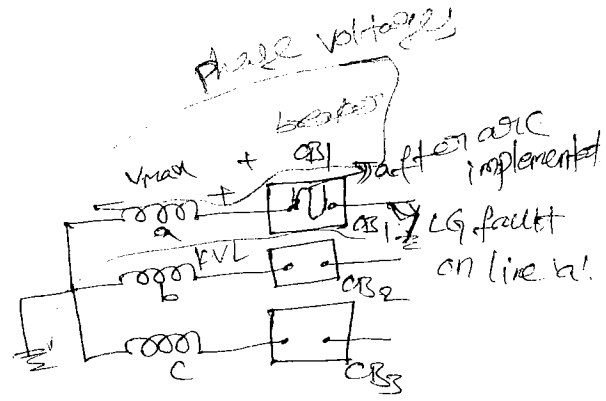 phase voltages
breaker
Vmax + CB1 after arc
+ implemented
a CB1 LG fault
KVL on line 'a'
b CB2
c CB3